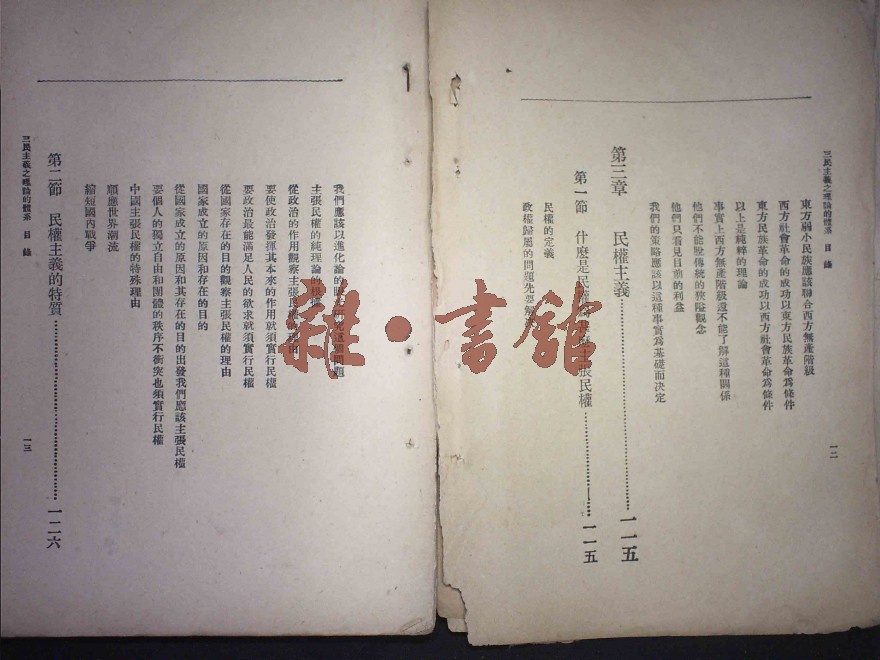 三民主義之理論的體系 目錄
一二
東方弱小民族應該聯合西方無產階級
西方社會革命的成功以東方民族革命爲條件
東方民族革命的成功以西方社會革命爲條件
以上是純粹的理論
事實上西方無產階級還不能了解這種關係
他們不能脫傳統的狹隘觀念
他們只看見目前的利益
我們的策略應該以這種事實爲基礎而決定
第三章 民權主義……一一五
第一節 什麼是民權主張民權……一一五
民權的定義
政權歸屬的問題先要解
我們應該以進化論的問題
主張民權的純理論的根據
從政治的作用觀察主張民權的理由
要使政治發揮其本來的作用就須實行民權
要政治最能滿足人民的欲求就須實行民權
從國家存在的目的觀察主張民權的理由
國家成立的原因和存在的目的
從國家成立的原因和其存在的目的出發我們應該主張民權
要個人的獨立自由和團體的秩序不衝突也須實行民權
中國主張民權的特殊理由
順應世界潮流
縮短國內戰爭
第二節 民權主義的特質……一二六
三民主義之理論的體系 目錄
一三
雜·書館